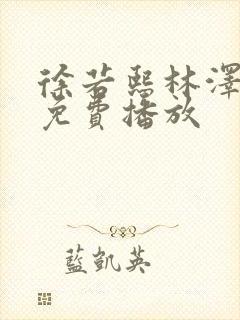 徐若熙林澤
免費播放
藍凱英